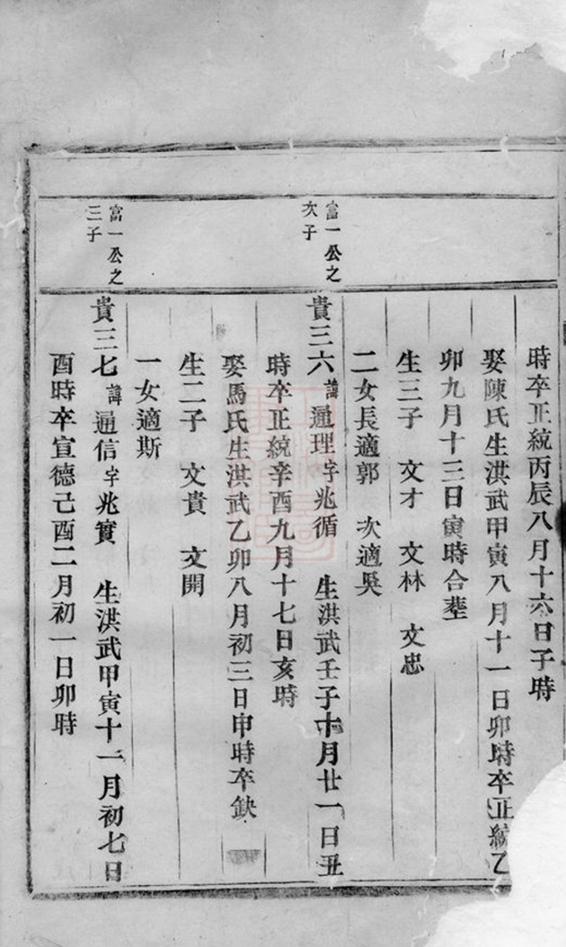 時卒正統丙辰八月十六日子時
娶陳氏生洪武甲寅八月十一日卯時卒正統乙
卯九月十三日寅時合塟
生三子 文才 文林 文忠
二女長適郭 次適吳
富一公之
次子
貴三六 諱通理字兆循 生洪武壬子十月廿一日丑
時卒正統辛酉九月十七日亥時
娶馬氏生洪武乙卯八月初三日申時卒缺
生二子 文貴 文開
一女適斯
富一公之
三子
貴三七 諱通信字兆實 生洪武甲寅十一月初七日
酉時卒宣德己酉二月初一日卯時